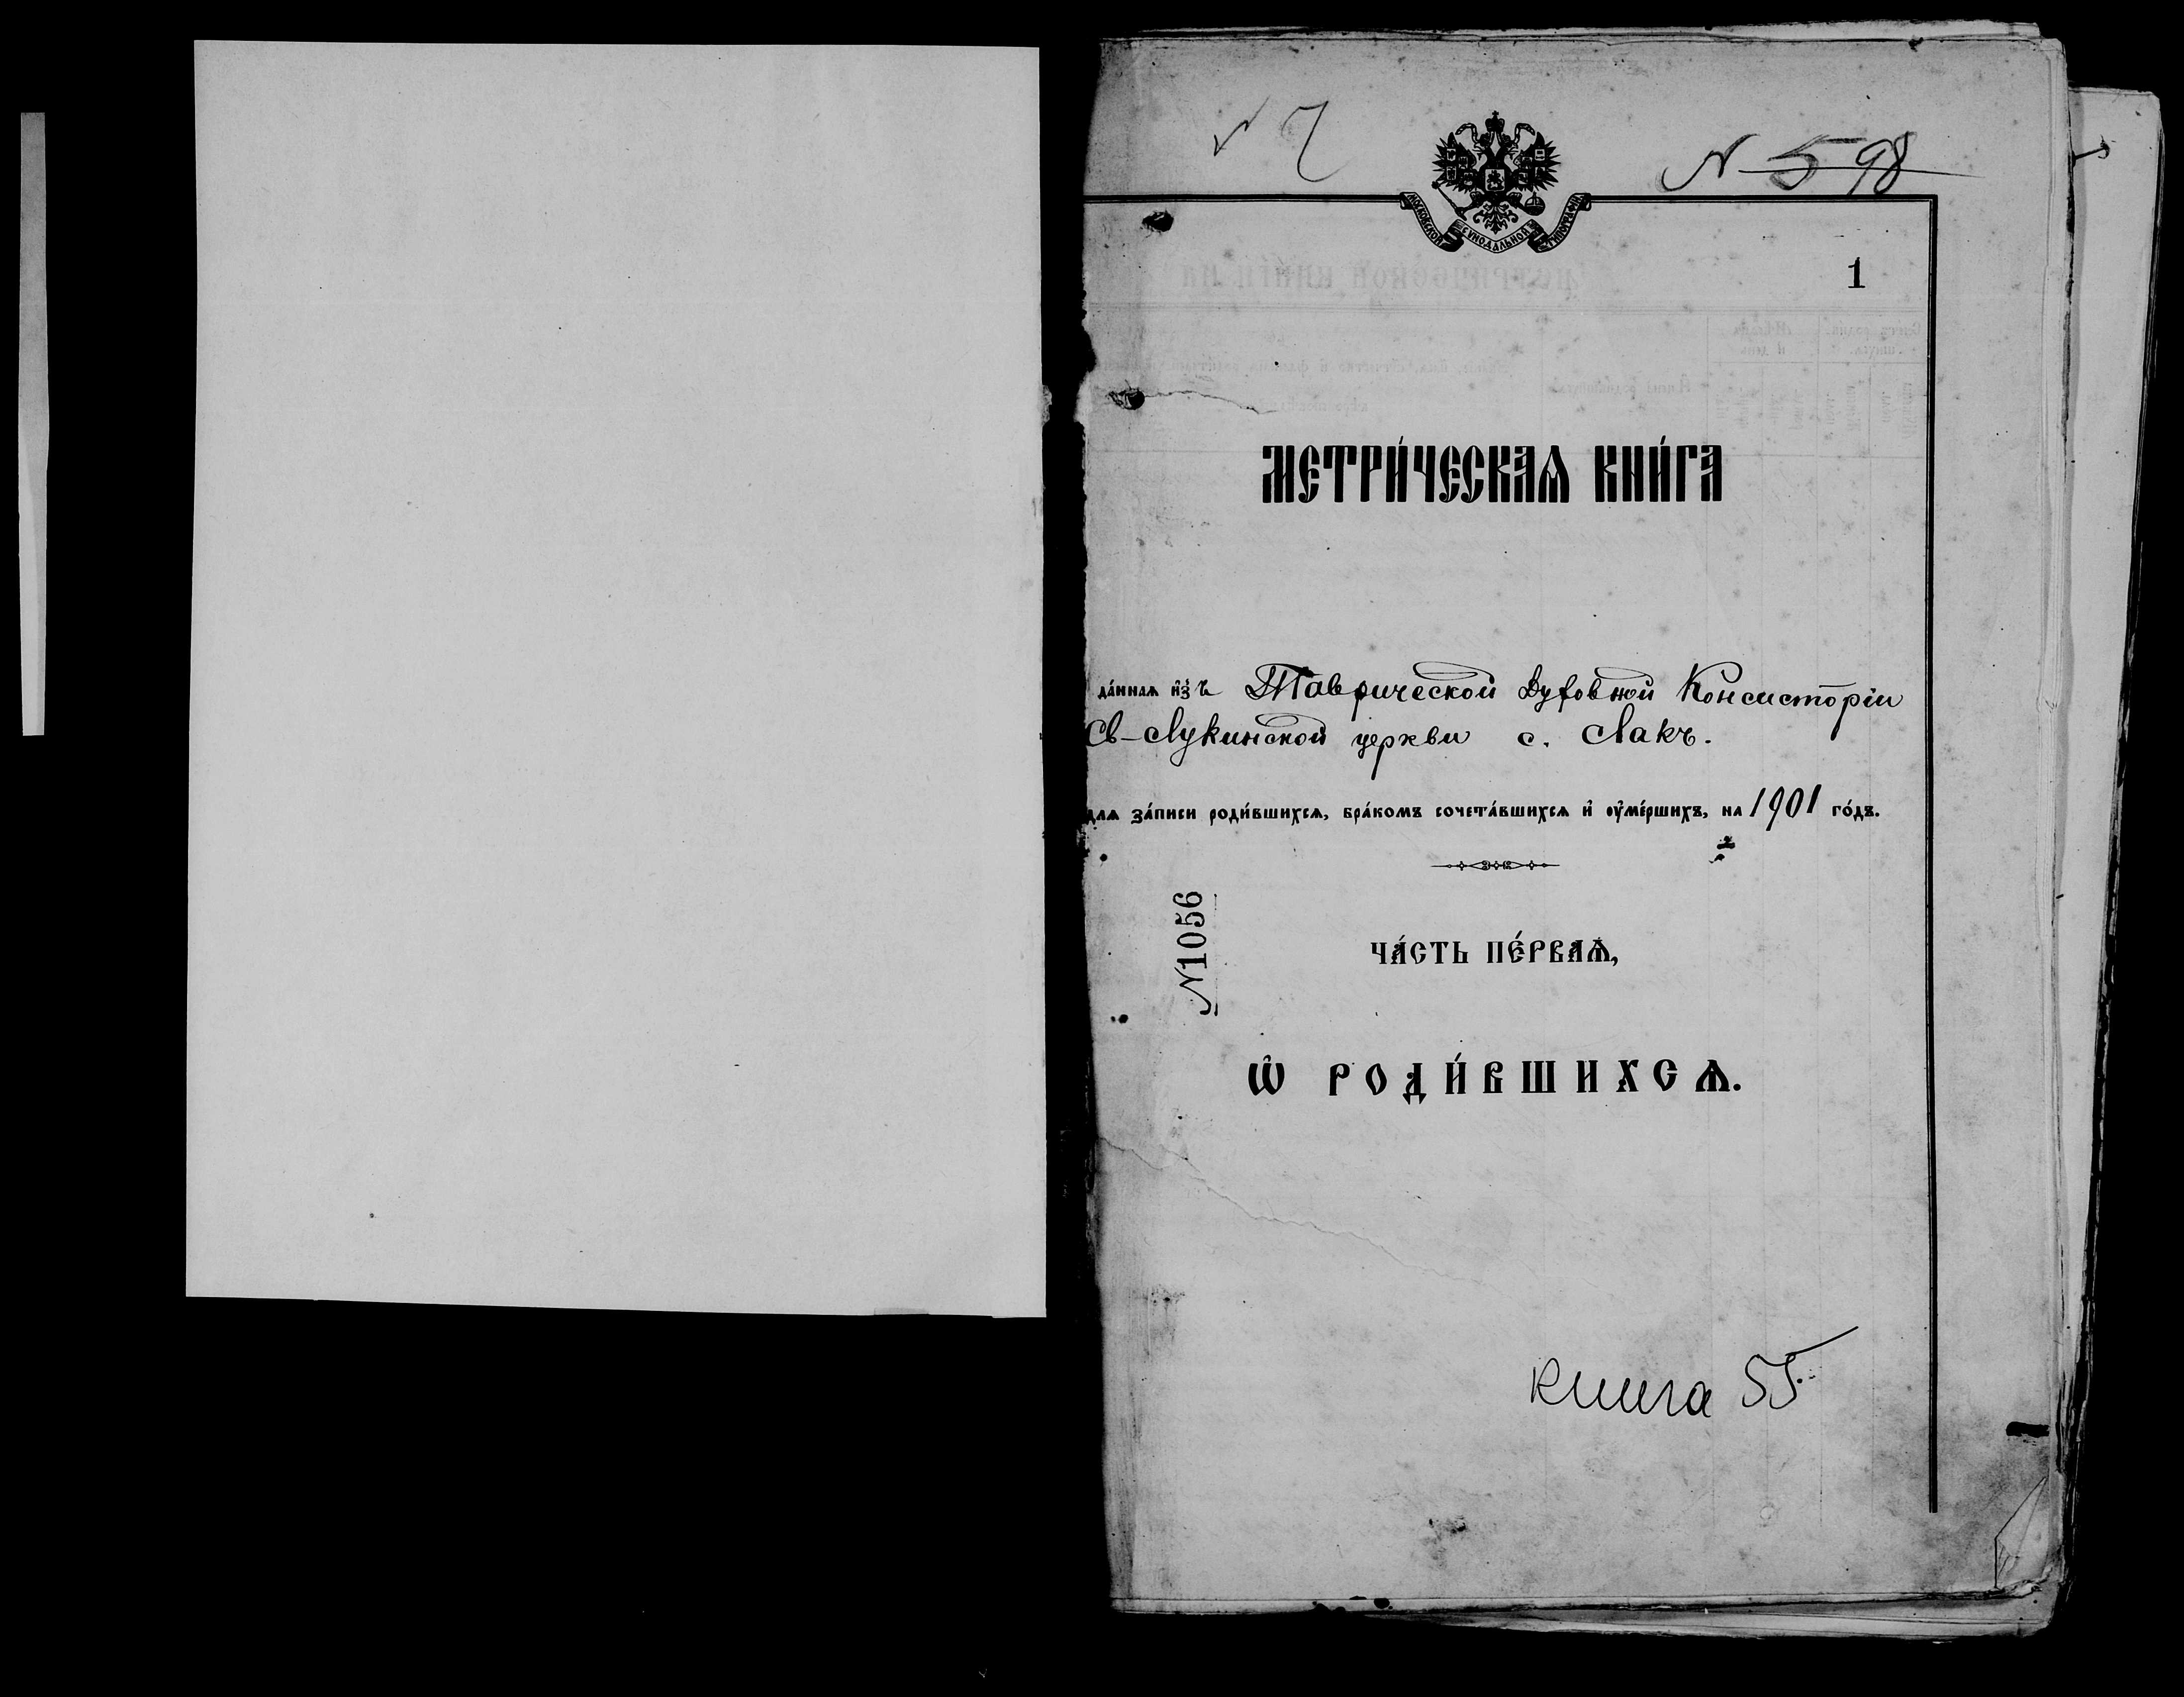 № 7
N 598
МОСКОВСКОЙ СѴНОДАЛЬНОЙ ТИПОГРАФІИ
1
МЕТРИ́ЧЕСКАѦ КНИ́ГА
да́нная и҆зъ Таврической Духовной Консисторіи
Св-Лукинской церкви с. Лакъ.
для за́писи роди́вшихсѧ, бра́комъ сочета́вшихсѧ и҆ ᲂу҆ме́ршихъ, на 1901 го́дъ.
№1056
ЧА́СТЬ ПЕ́РВАѦ,
Ѡ҆ РОДИ́ВШИХСѦ.
книга 55